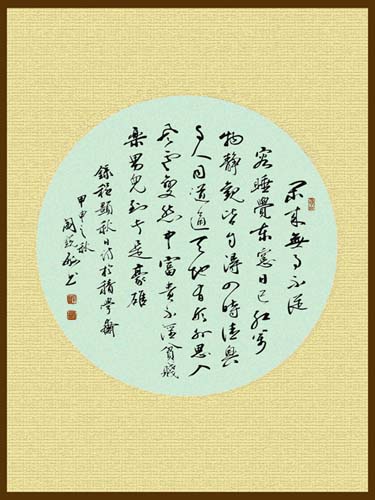 閑來無事不從
容睡覺東窗日已紅萬
物靜觀皆自得四時佳興
与人同道通天地有形外思入
風雲變態中富貴不淫貧賤
樂男兒到此是豪雄
錄程顥秋日詩於積學齋
甲申之秋
周 书